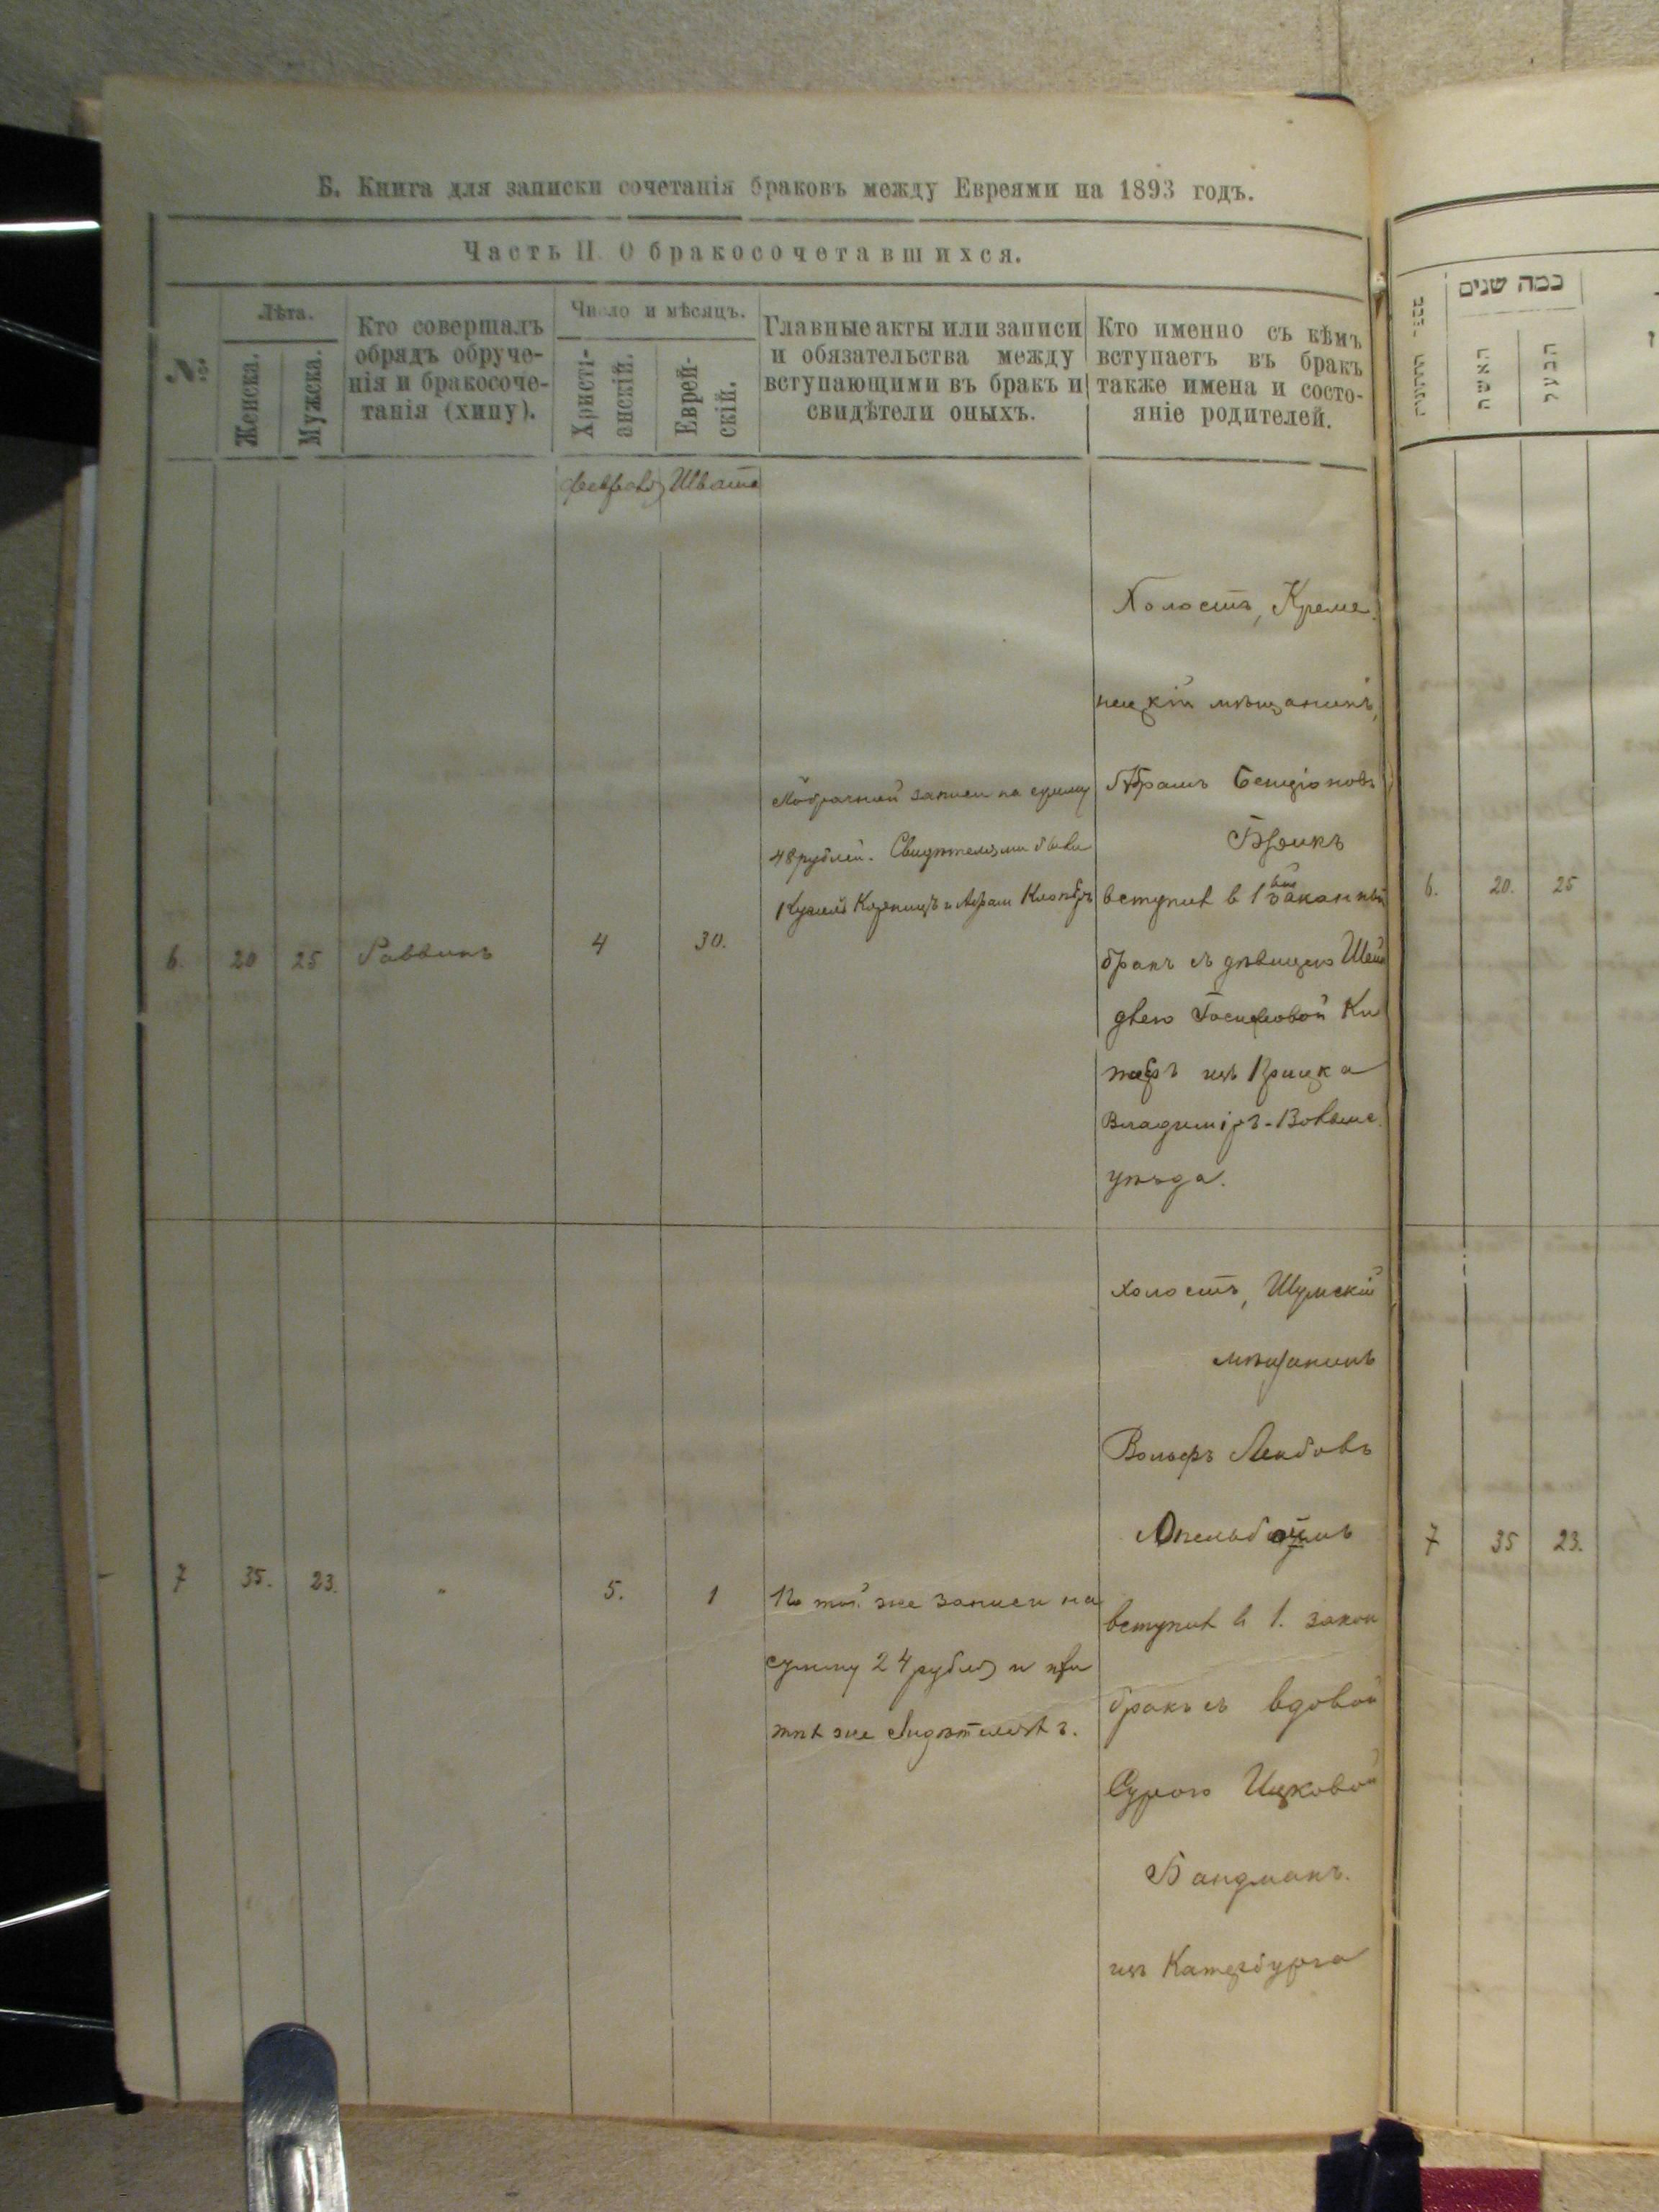 Б. Книга для записки сочетанія браковъ между Евреями на 1893 годъ.
Часть II. О бракосочетавшихся.
№
Лѣта.
Женска.
Мужска.
Кто совершалъ
обрядъ обруче-
нія и бракосоче-
танія (хипу).
Число и мѣсяцъ.
Христі-
анскій.
Еврей-
скій.
Главные акты или записи
и обязательства между
вступающими въ бракъ и
свидѣтели оныхъ.
Кто именно съ кѣмъ
вступаетъ въ бракъ
также имена и состо-
яніе родителей.
Шватъ
6. 20 25 Раввинъ 4 30.
записи на сумму
48 рублей. Свидѣтелями были
Холостъ, Креме
нецкій мѣщанинъ,
Абрамъ Бенціоновъ
вступил в 1 законный
бракъ съ дѣвицею Шей
Іосифовой
изъ
Владимiръ-Волынс.
уѣзда.
7 35. 23. " 5. 1
По той же записи на
сумму 24 рубля и при
тѣх же Свидѣтелях.
Холостъ, Шумскій
мѣщанинъ
Вольфъ Лейбовъ
вступил в 1. закон
бракъ съ вдовой
Сурою Ицковой
Бандманъ.
изъ Катербурга
כמה שנים
האשה
הבעל
6. 20. 25
7 35 23.